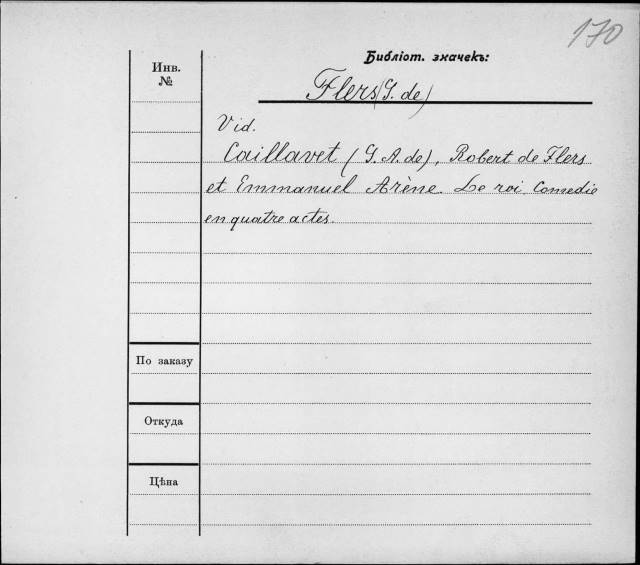 170
Библіот. значекъ:
Инв.
№
Flers (G. de)
Vid.
Caillavet (G. A. de), Robert de Flers
et Emmanuel Arène. Le roi. Comedie
en quatre actes.
По заказу
Откуда
Цѣна